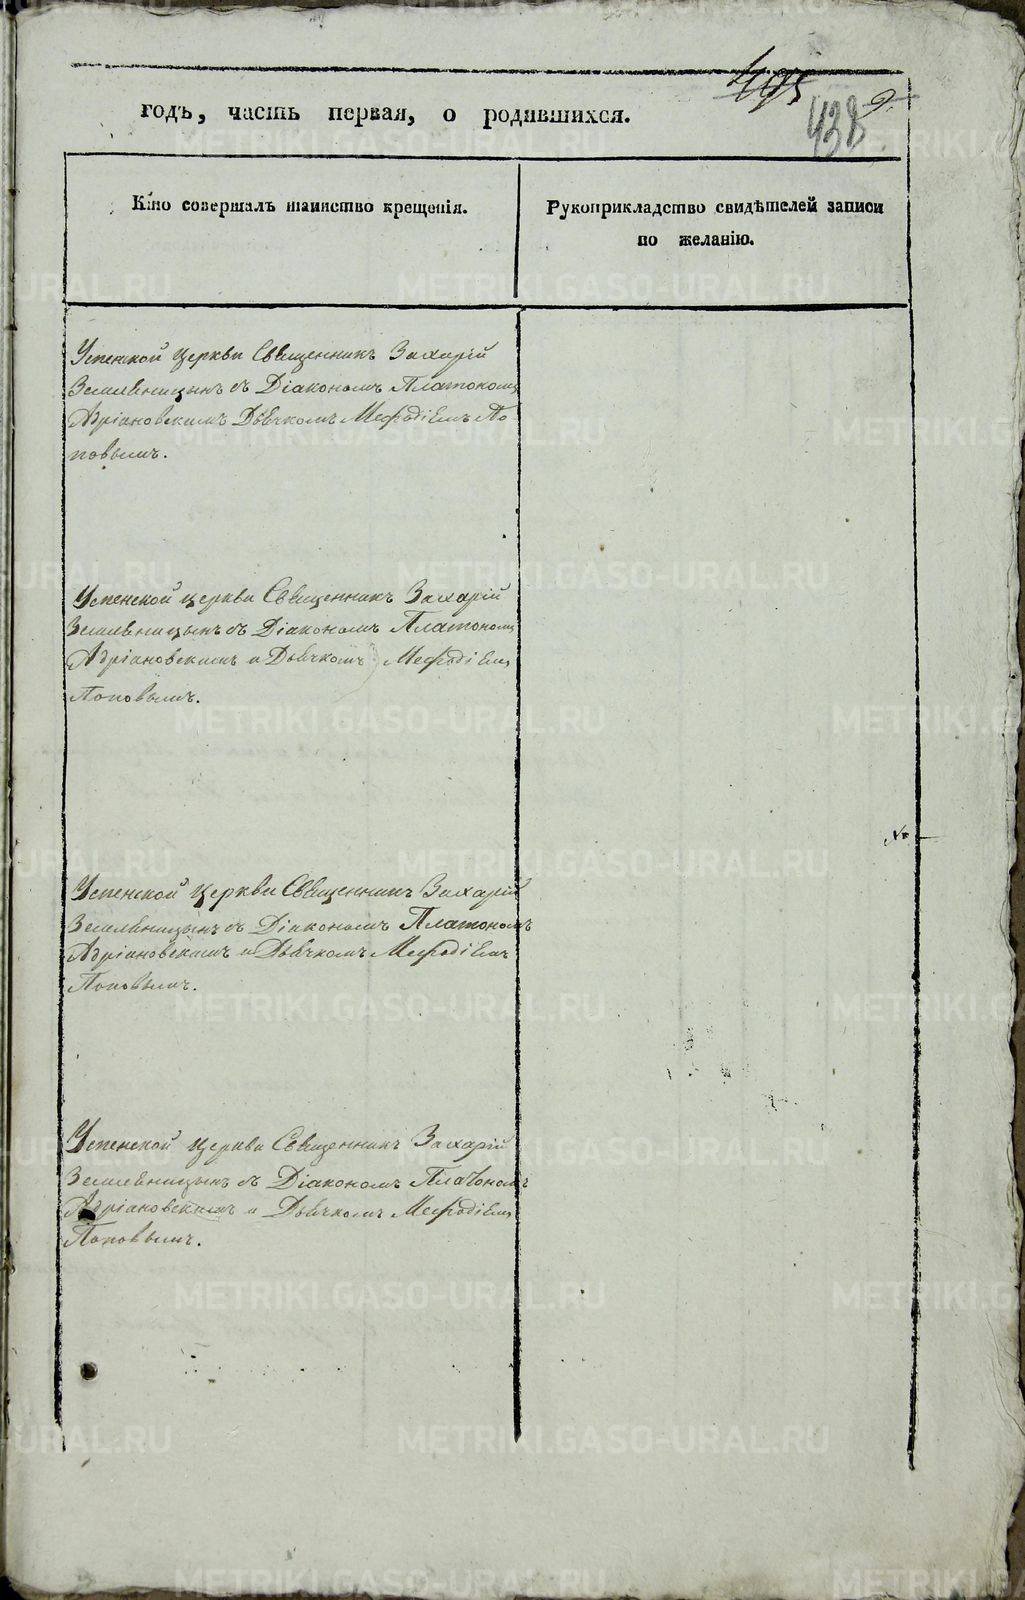 495
438
9.
годъ, часть первая, о родившихся.
Кто совершалъ таинство крещенія.
Рукоприкладство свидѣтелей записи
по желанію.
Успенской церкви Священникъ Захарій
Земляницынъ съ Діакономъ Платономъ
Адріановскимъ Дьячкомъ Мефодіемъ По-
повымъ.
Успенской церкви Священникъ Захарій
Земляницынъ съ Діакономъ Платономъ
Адріановскимъ и Дьячкомъ Мефодіемъ
Поповымъ.
Успенской церкви Священникъ Захарій
Земляницынъ съ Діакономъ Платономъ
Адріановскимъ и Дьячкомъ Мефодіемъ
Поповымъ.
Успенской церкви Священникъ Захарій
Земляницынъ съ Діакономъ Платономъ
Адріановскимъ и Дьячкомъ Мефодіемъ
Поповымъ.
METRIKI.GASO-URAL.RU